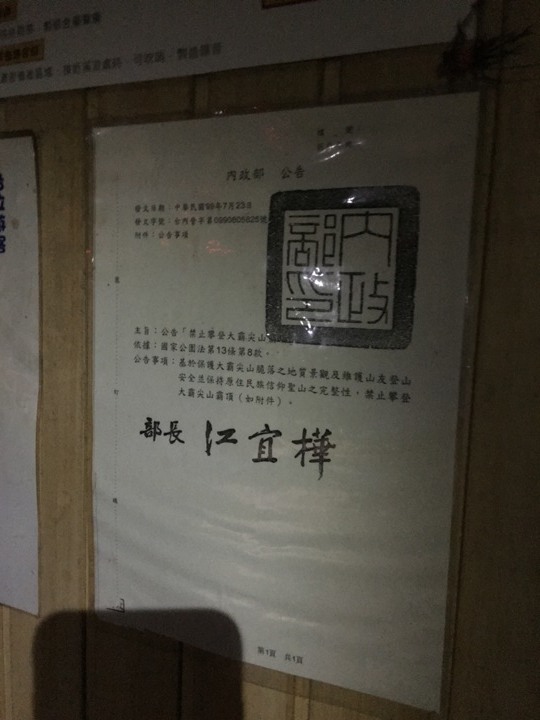 內政部 公告
發文日期：中華民國99年7月23日
發文字號：台內營字第0990805625號
附件：公告事項
內政部印
主旨：公告「禁止攀登大霸尖山
依據：國家公園法第13條第8款。
公告事項：基於保護大霸尖山脆落之地質景觀及維護山友登山
安全並保持原住民族信仰聖山之完整性，禁止攀登
大霸尖山霸頂（如附件）。
部長 江宜樺
裝
訂
線
第1頁 共1頁